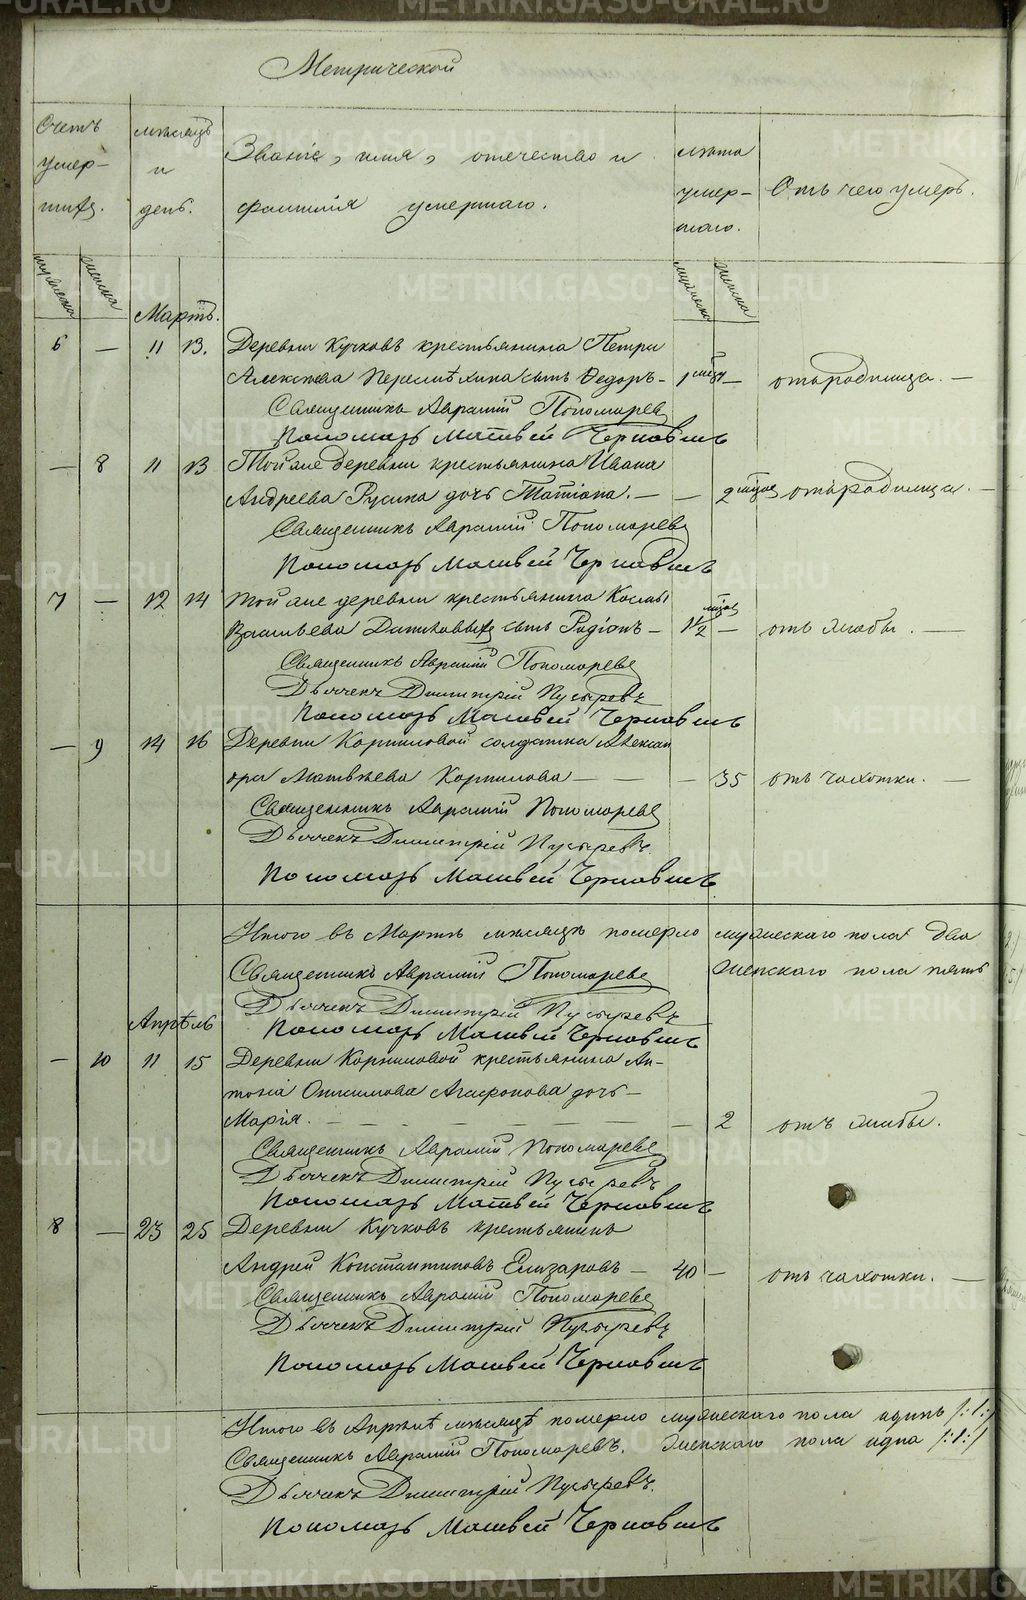 Метрической
Счетъ умер-шихъ.
мѣсяцъ и день.
Званіе, имя, отечество и фамилія умершаго.
лѣта умер-шаго.
Отъ чего умеръ.
мужеска
женска
мужеска
женска
Мартъ.
6 — 11 13. Деревни Кучковъ крестьянина Петра
Алексѣева сынъ Ѳедоръ — отъ родимца. —
Священникъ Аврамій Пономаревъ
Пономарь Матвей Черновинъ
— 8 11 13 Той же деревни крестьянина Ивана
Андреева Русина дочь Татіана. — — 2 отъ родимца. —
Священникъ Аврамій Пономаревъ
Пономарь Матвей Черновинъ
7 — 12 14 Той же деревни крестьянина Козмы
Васильева сынъ Родіонъ — 1½ — отъ жабы. —
Священникъ Аврамій Пономаревъ
Дьячекъ Димитрій Пузыревъ
Пономарь Матвей Черновинъ
— 9 14 16 Деревни Корниловой солдатка Алексан
дра Матвѣева Корнилова — — — 35 отъ чахотки. —
Священникъ Аврамій Пономаревъ
Дьячекъ Димитрій Пузыревъ.
Пономарь Матвей Черновинъ
Итого въ Мартѣ мѣсяцѣ померло мужескаго пола два
Священникъ Аврамій Пономаревъ женскаго пола пять
Дьячекъ Димитрій Пузыревъ
Апрѣль
Пономарь Матвей Черновинъ
— 10 11 15 Деревни Корниловой крестьянина Ан-
тона Агафонова дочь —
Марія. — — 2 отъ жабы.
Священникъ Аврамій Пономаревъ
Дьячекъ Димитрій Пузыревъ
Пономарь Матвей Черновинъ
8 — 23 25 Деревни Кучковъ крестьянинъ
Андрей Константиновъ Елизаровъ — 40 — отъ чахотки. —
Священникъ Аврамій Пономаревъ
Дьячекъ Димитрій Пузыревъ
Пономарь Матвей Черновинъ
Итого въ Апрѣлѣ мѣсяцѣ померло мужескаго пола одинъ /:1:/
Священникъ Аврамій Пономаревъ. Женскаго пола одна /:1:/
Дьячекъ Димитрій Пузыревъ.
Пономарь Матвей Черновинъ
METRIKI.GASO-URAL.RU